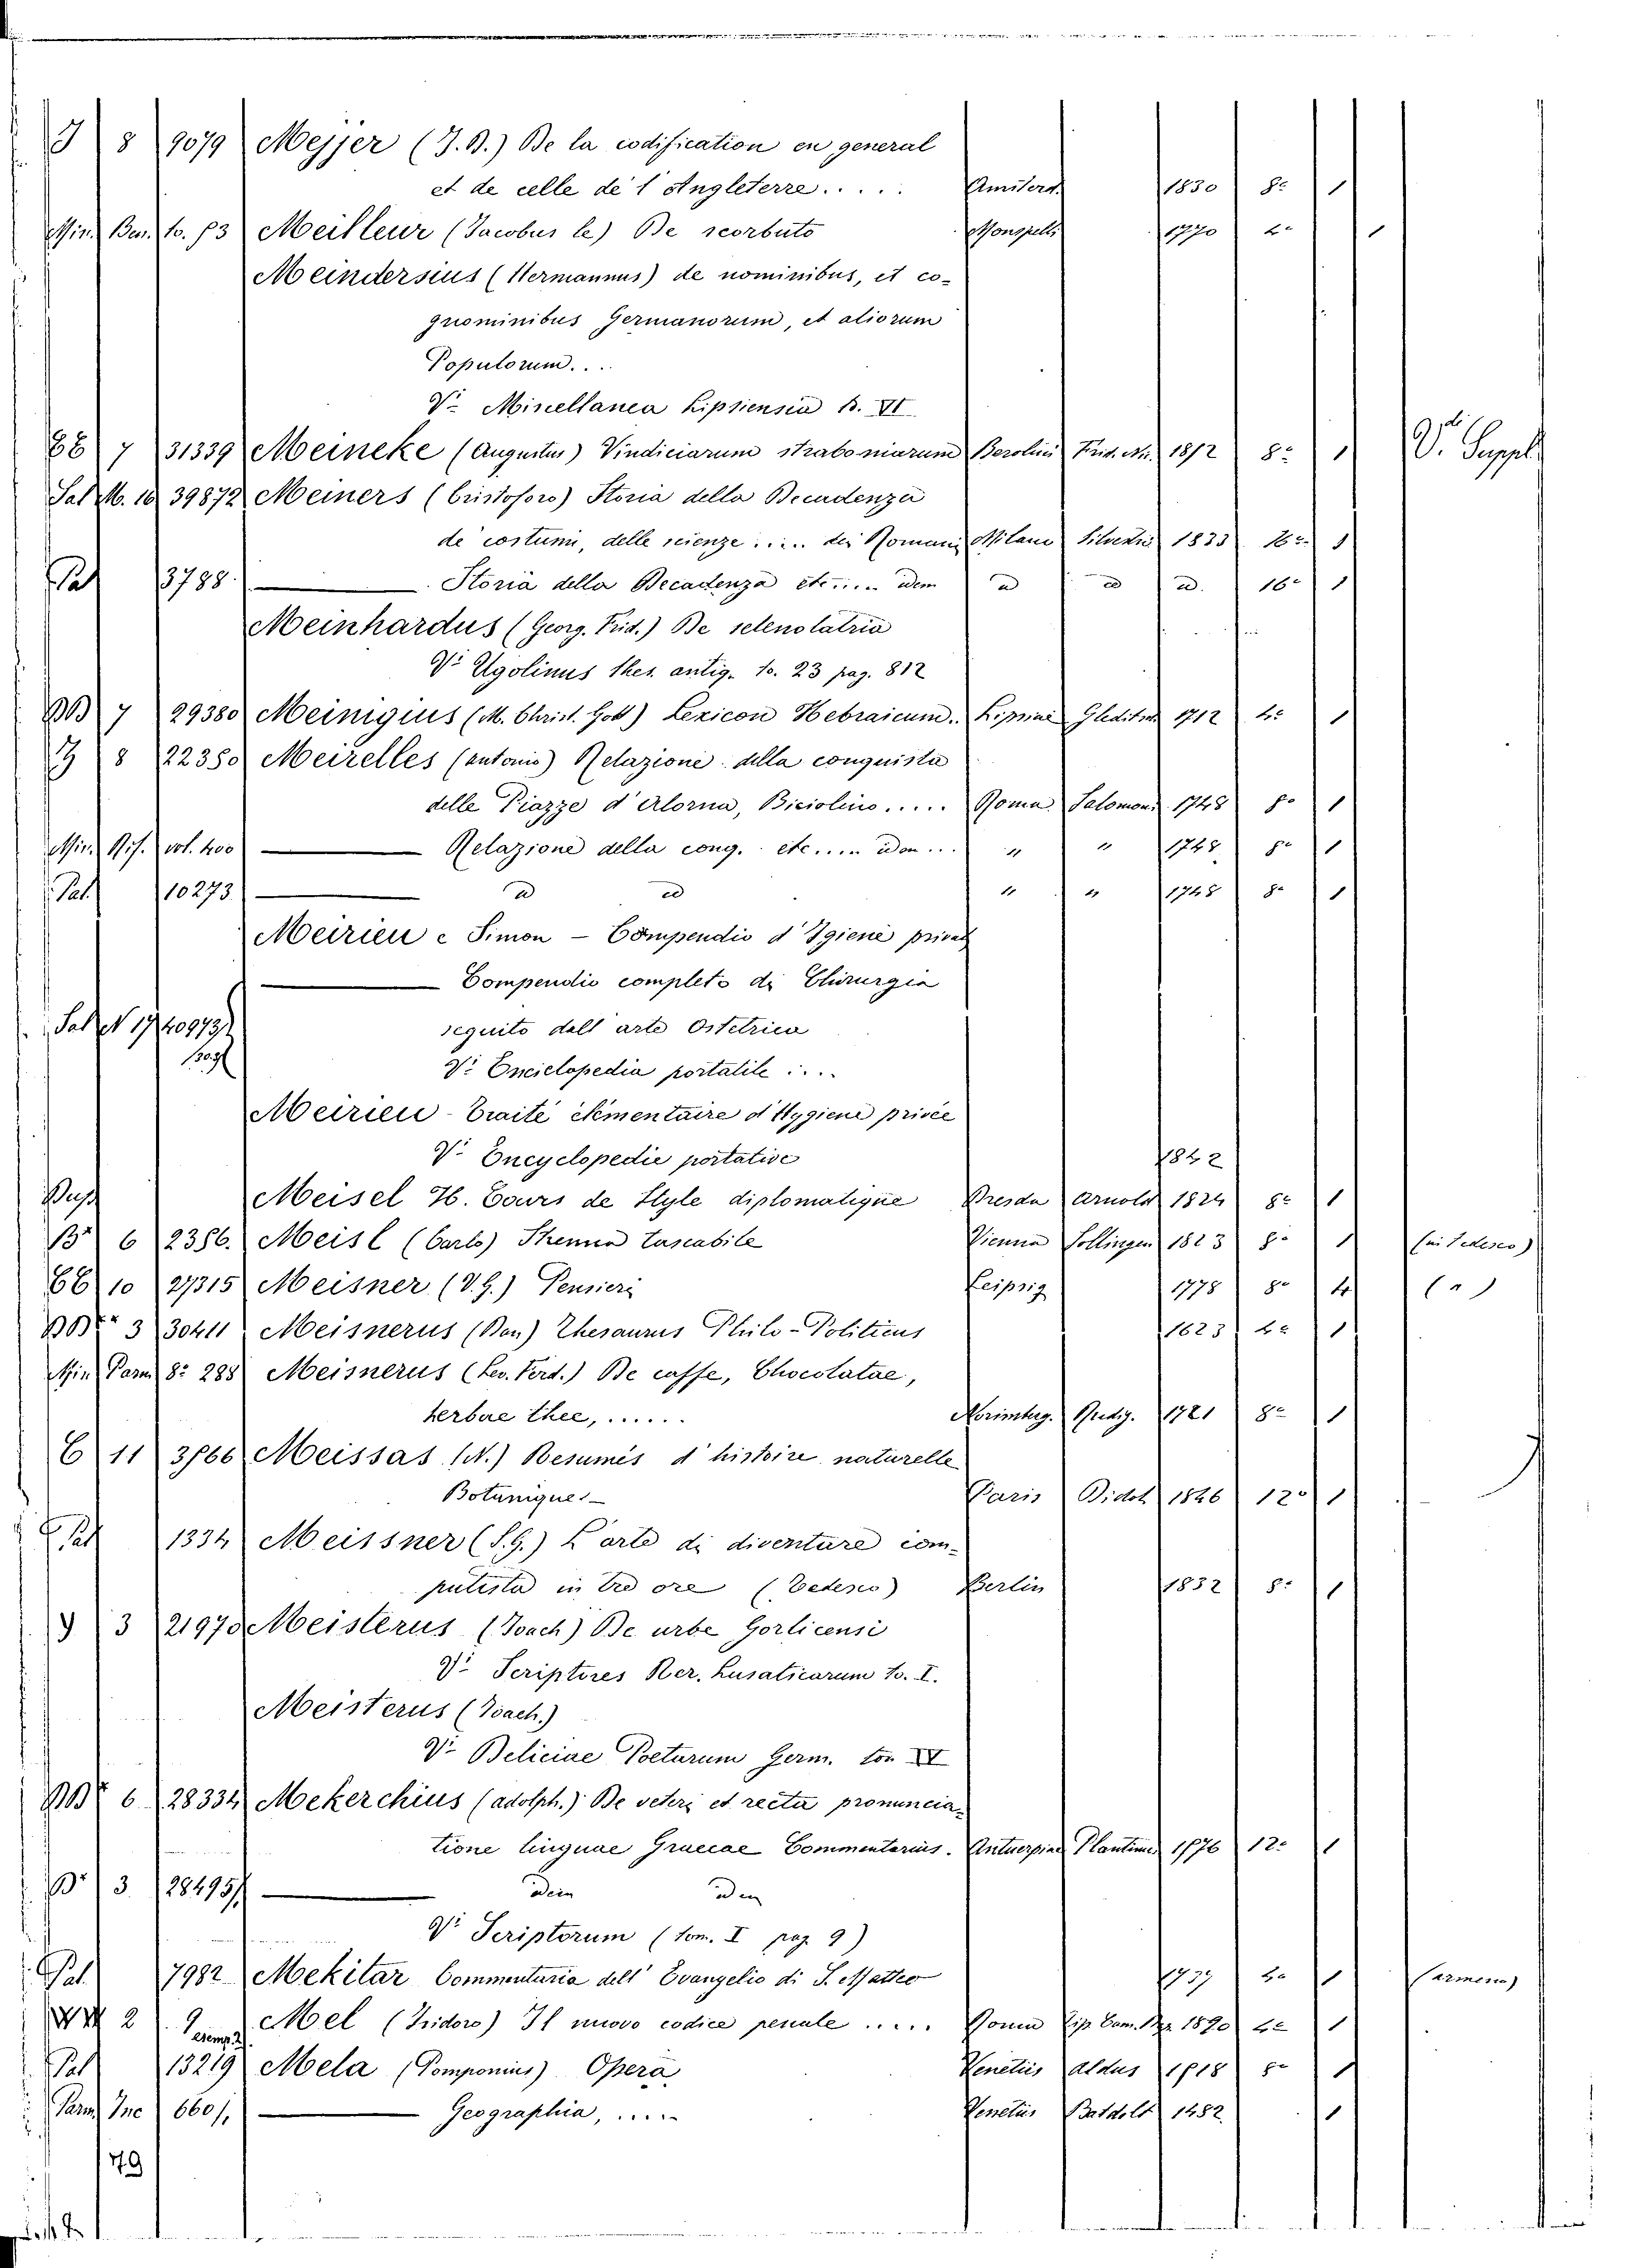 J 8 9079 Mejjer (J. B.) De la codification en general
et de celle de l'Angleterre..... Amsterd. 1830 8º 1
Min. Bar. to. 53 Meilleur (Jacobus le) De scorbuto Monspelli 1770 4º 1
Meindersius (Hermannus) de nominibus, et co-
gnominibus Germanorum, et aliorum
Populorum....
Vº Misellanea Lipsiensia t. VI
7 31339 Meineke (Augustus) Vindiciarum straboniarum Berolini Frid. Ni. 1852 8º 1 Vº Suppl.
Sal. M. 10 39872 Meiners (Cristoforo) Storia della Decadenza
de' costumi, delle scienze..... dei Romani Milano Silvestri 1833 16º 1
Pal 3788. Storia della Decadenza etc..... idem id id id. 16º 1
Meinhardus (Georg. Frid.) De selenolatria
Vº Ugolinus thes. antiq. to. 23 pag. 812
BB 7 29380 Meinigius (M. Christ. Gott) Lexicon Hebraicum. Lipsiae Gleditsc 1712 4º 1
8 22380 Meirelles (Antonio) Relazione della conquista
delle Piazze d'Alorna, Biciolino..... Roma Salomoni 1748 8º 1
Min. Ris. vol. 400 Relazione della conq. etc..... idem... " " 1748 8º 1
Pal. 10273. id id " " 1748 8º 1
Meirieu e Simon - Compendio d'Igiene privat
Compendio completo di Chirurgia
Sal. N 17 40973
seguito dall'arte Ostetrica
Vº Enciclopedia portatile....
Meirieu - Traité élémentaire d'Hygiene privée
Vº Encyclopedie portative 1842
Meisel H. Cours de Style diplomatique Dresda Arnold 1824 8º 1
6 2356. Meisl (Carlo) Themin tascabile Vienna Sollingen 1823 8º 1 (in Tedesco)
10 27315 Meisner (V.G.) Pensieri Leipzig 1778 8º 4 (")
3 30411 Meisnerus (Dan) Thesaurus Philo-Politicus 1623 4º 1
Min Parm 8º 288 Meisnerus (Leo. Ferd.) De caffe, Chocolatae,
herbae thee,...... Norimberg. Rudig. 1721 8º 1
C 11 3566 Meissas (N.) Resumés d'histoire naturelle
Botanique.- Paris Didot 1826 12º 1
Pal 1334 Meissner (S.G.) L'arte di diventare com-
putista in tre ore (Tedesco) Berlin 1832 8º 1
y 3 21970 Meisterus (Joach) De urbe Gorlicensi
Vº Scriptores Rer. Lusaticarum to. I.
Meisterus (Joach.)
Vº Deliciae Poetarum Germ. tom IV
6 28334 Mekerchius (Adolph.) De veteri et recta pronuncia-
tione linguae Graecae Commentarius. Antuerpiae Plantini 1576 12º 1
3 28495 idem idem
Vº Scriptorum (tom. I pag 9)
Pal. 7982 Mekitar Commentaria dell'Evangelio di S. Matteo 1737 4º 1 (armeno)
2 esemp. 2 Mel (Isidoro) Il nuovo codice penale..... Roma Tip. Cam. Dep. 1890 4º 1
Pal 13219 Mela (Pomponius) Opera Venetiis Aldus 1518 8º 1
Parm Inc 660 Geographia,..... Venetiis Batdolt 1482 1
79